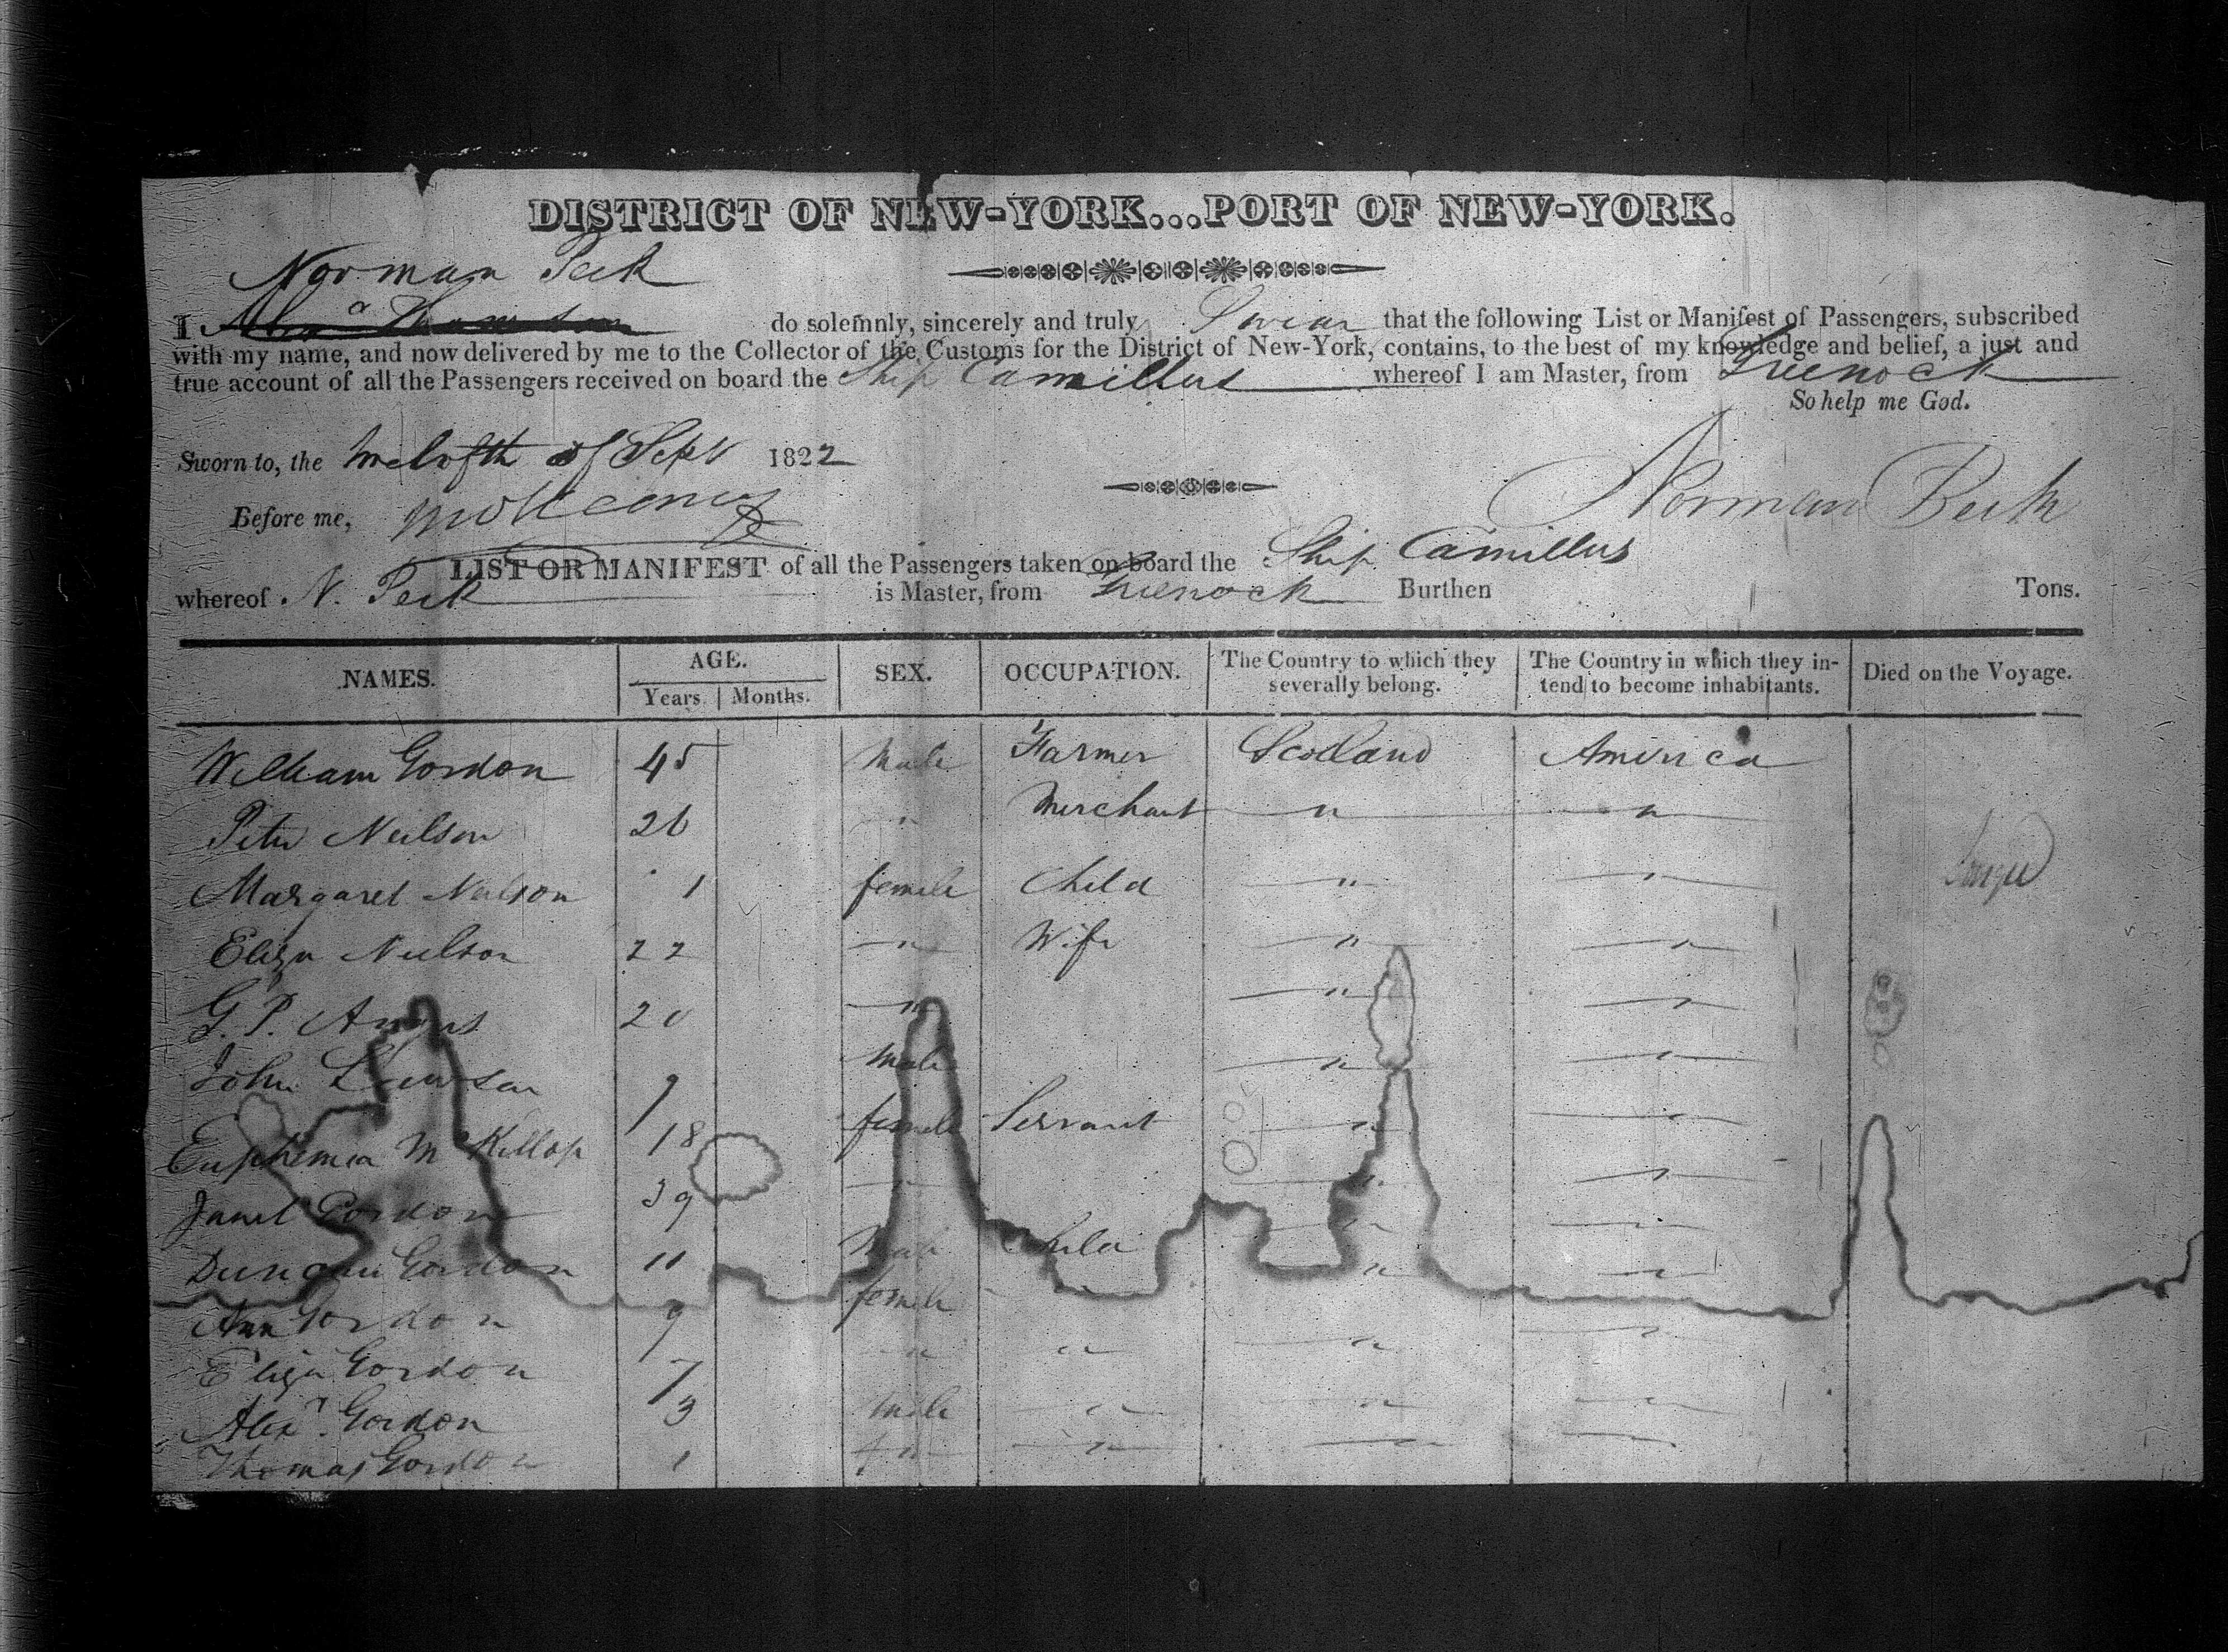 DISTRICT OF NEW-YORK...PORT OF NEW-YORK.
Norman Peck
I do solemnly, sincerely and truly Swear that the following List or Manifest of Passengers, subscribed
with my name, and now delivered by me to the Collector of the Customs for the District of New-York, contains, to the best of my knowledge and belief, a just and
true account of all the Passengers received on board the Ship Camillus whereof I am Master, from Greenock
So help me God.
Sworn to, the twelfth of Sept 1822
Before me,
Norman Peck
LIST OR MANIFEST of all the Passengers taken on board the Ship Camillus
whereof N. Peck is Master, from Greenock Burthen Tons.
NAMES. AGE. Years Months. SEX. OCCUPATION. The Country to which they severally belong. The Country in which they intend to become inhabitants. Died on the Voyage.
William Gordon 45 Male Farmer Scotland America
Peter Neilson 26 " Merchant " "
Margaret Neilson 1 female Child " "
Eliza Neilson 22 " Wife " "
G. P. Angus 20 " " "
John 9 Male " "
Euphemia McKillop 18 female Servant " "
Janet Gordon 39 " " "
Duncan Gordon 11 Male Child " "
Ann Gordon 9 female " "
Eliza Gordon 7 " " " "
Alexr. Gordon 3 Male " " "
Thomas Gordon 1 " "